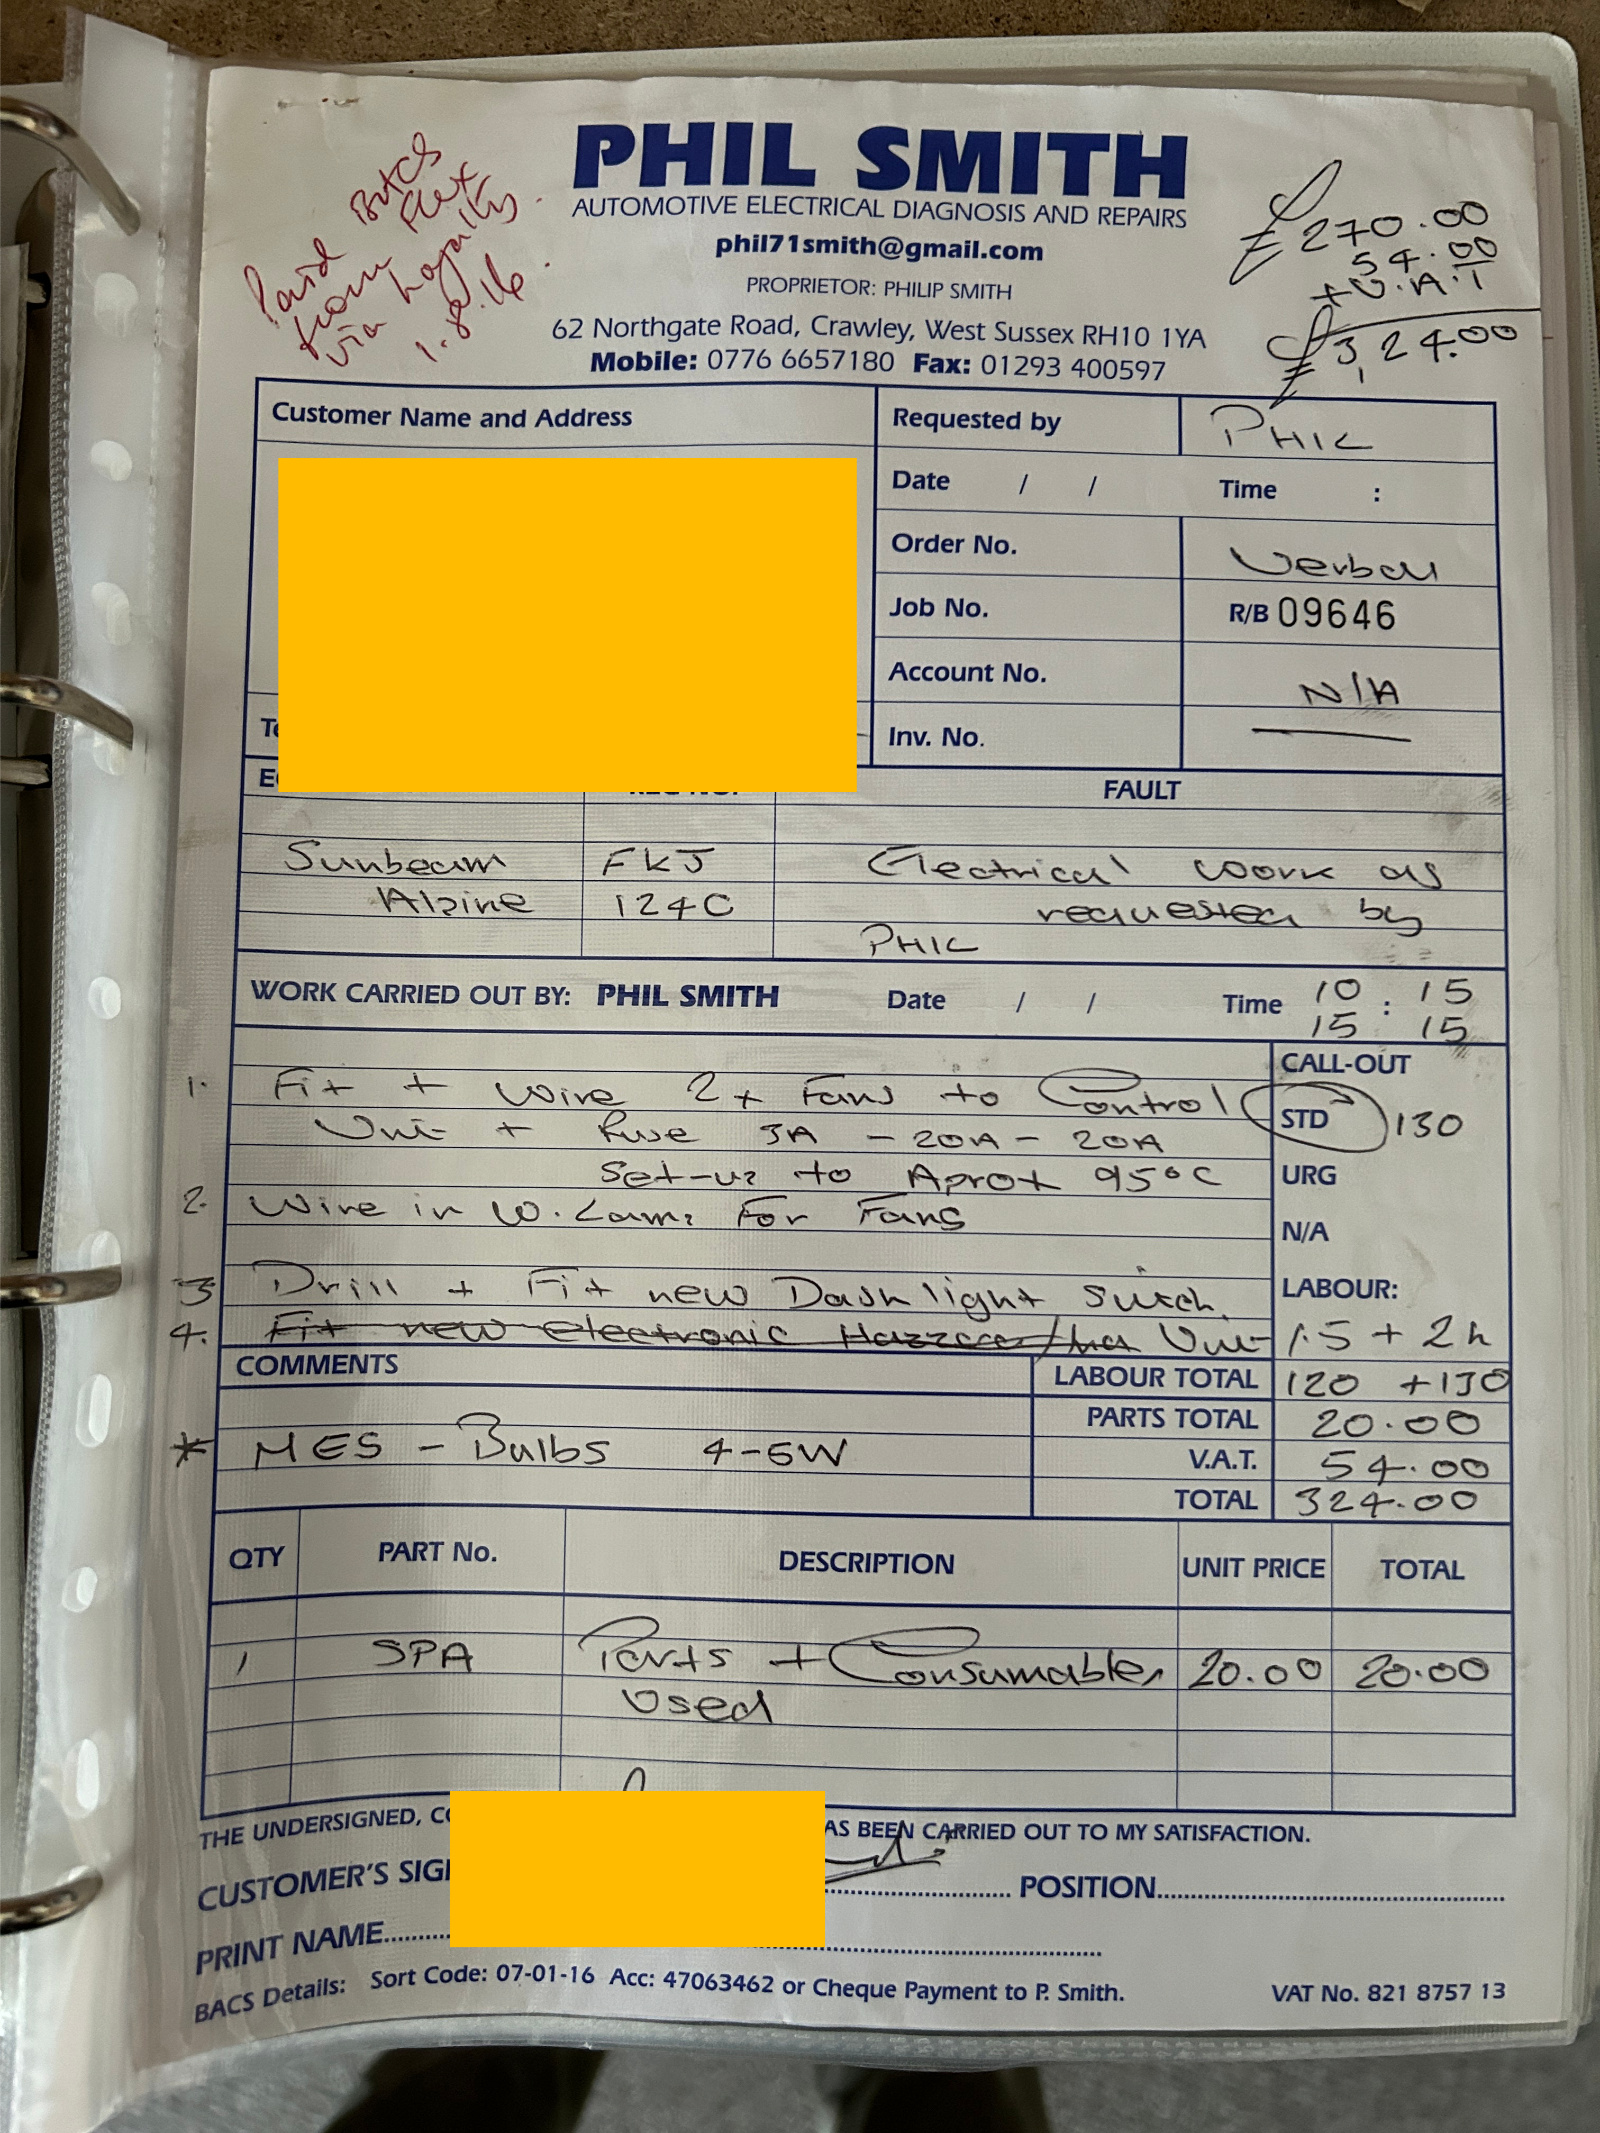 PHIL SMITH
AUTOMOTIVE ELECTRICAL DIAGNOSIS AND REPAIRS
phil71smith@gmail.com
PROPRIETOR: PHILIP SMITH
62 Northgate Road, Crawley, West Sussex RH10 1YA
Mobile: 0776 6657180 Fax: 01293 400597
Paid
from
via
1.8.16.
£270.00
54.00
+V.A.T
£3,24.00
Customer Name and Address
Requested by PHIL
Date / / Time :
Order No. Verbal
Job No. R/B 09646
Account No. N/A
Inv. No.
FAULT
Sunbeam FKJ Electrical work as
Alpine 124C requested by
PHIL
WORK CARRIED OUT BY: PHIL SMITH Date / / Time 10 : 15
15 15
CALL-OUT
1. Fit + Wire 2x Fans to Control
STD 130
Unit + Fuse 3A - 20A - 20A
Set-up to Aprox 95°C
URG
2. Wire in W. Lamp For Fans
N/A
3 Drill + Fit new Dash light switch
LABOUR:
4. Fit new electronic Unit 1.5 + 2h
COMMENTS
LABOUR TOTAL 120 +130
PARTS TOTAL 20.00
* MES - Bulbs 4-6W
V.A.T. 54.00
TOTAL 324.00
QTY PART No. DESCRIPTION UNIT PRICE TOTAL
1 SPA Parts + Consumables 20.00 20.00
Used
THE UNDERSIGNED, AS BEEN CARRIED OUT TO MY SATISFACTION.
CUSTOMER'S POSITION
PRINT NAME
BACS Details: Sort Code: 07-01-16 Acc: 47063462 or Cheque Payment to P. Smith. VAT No. 821 8757 13